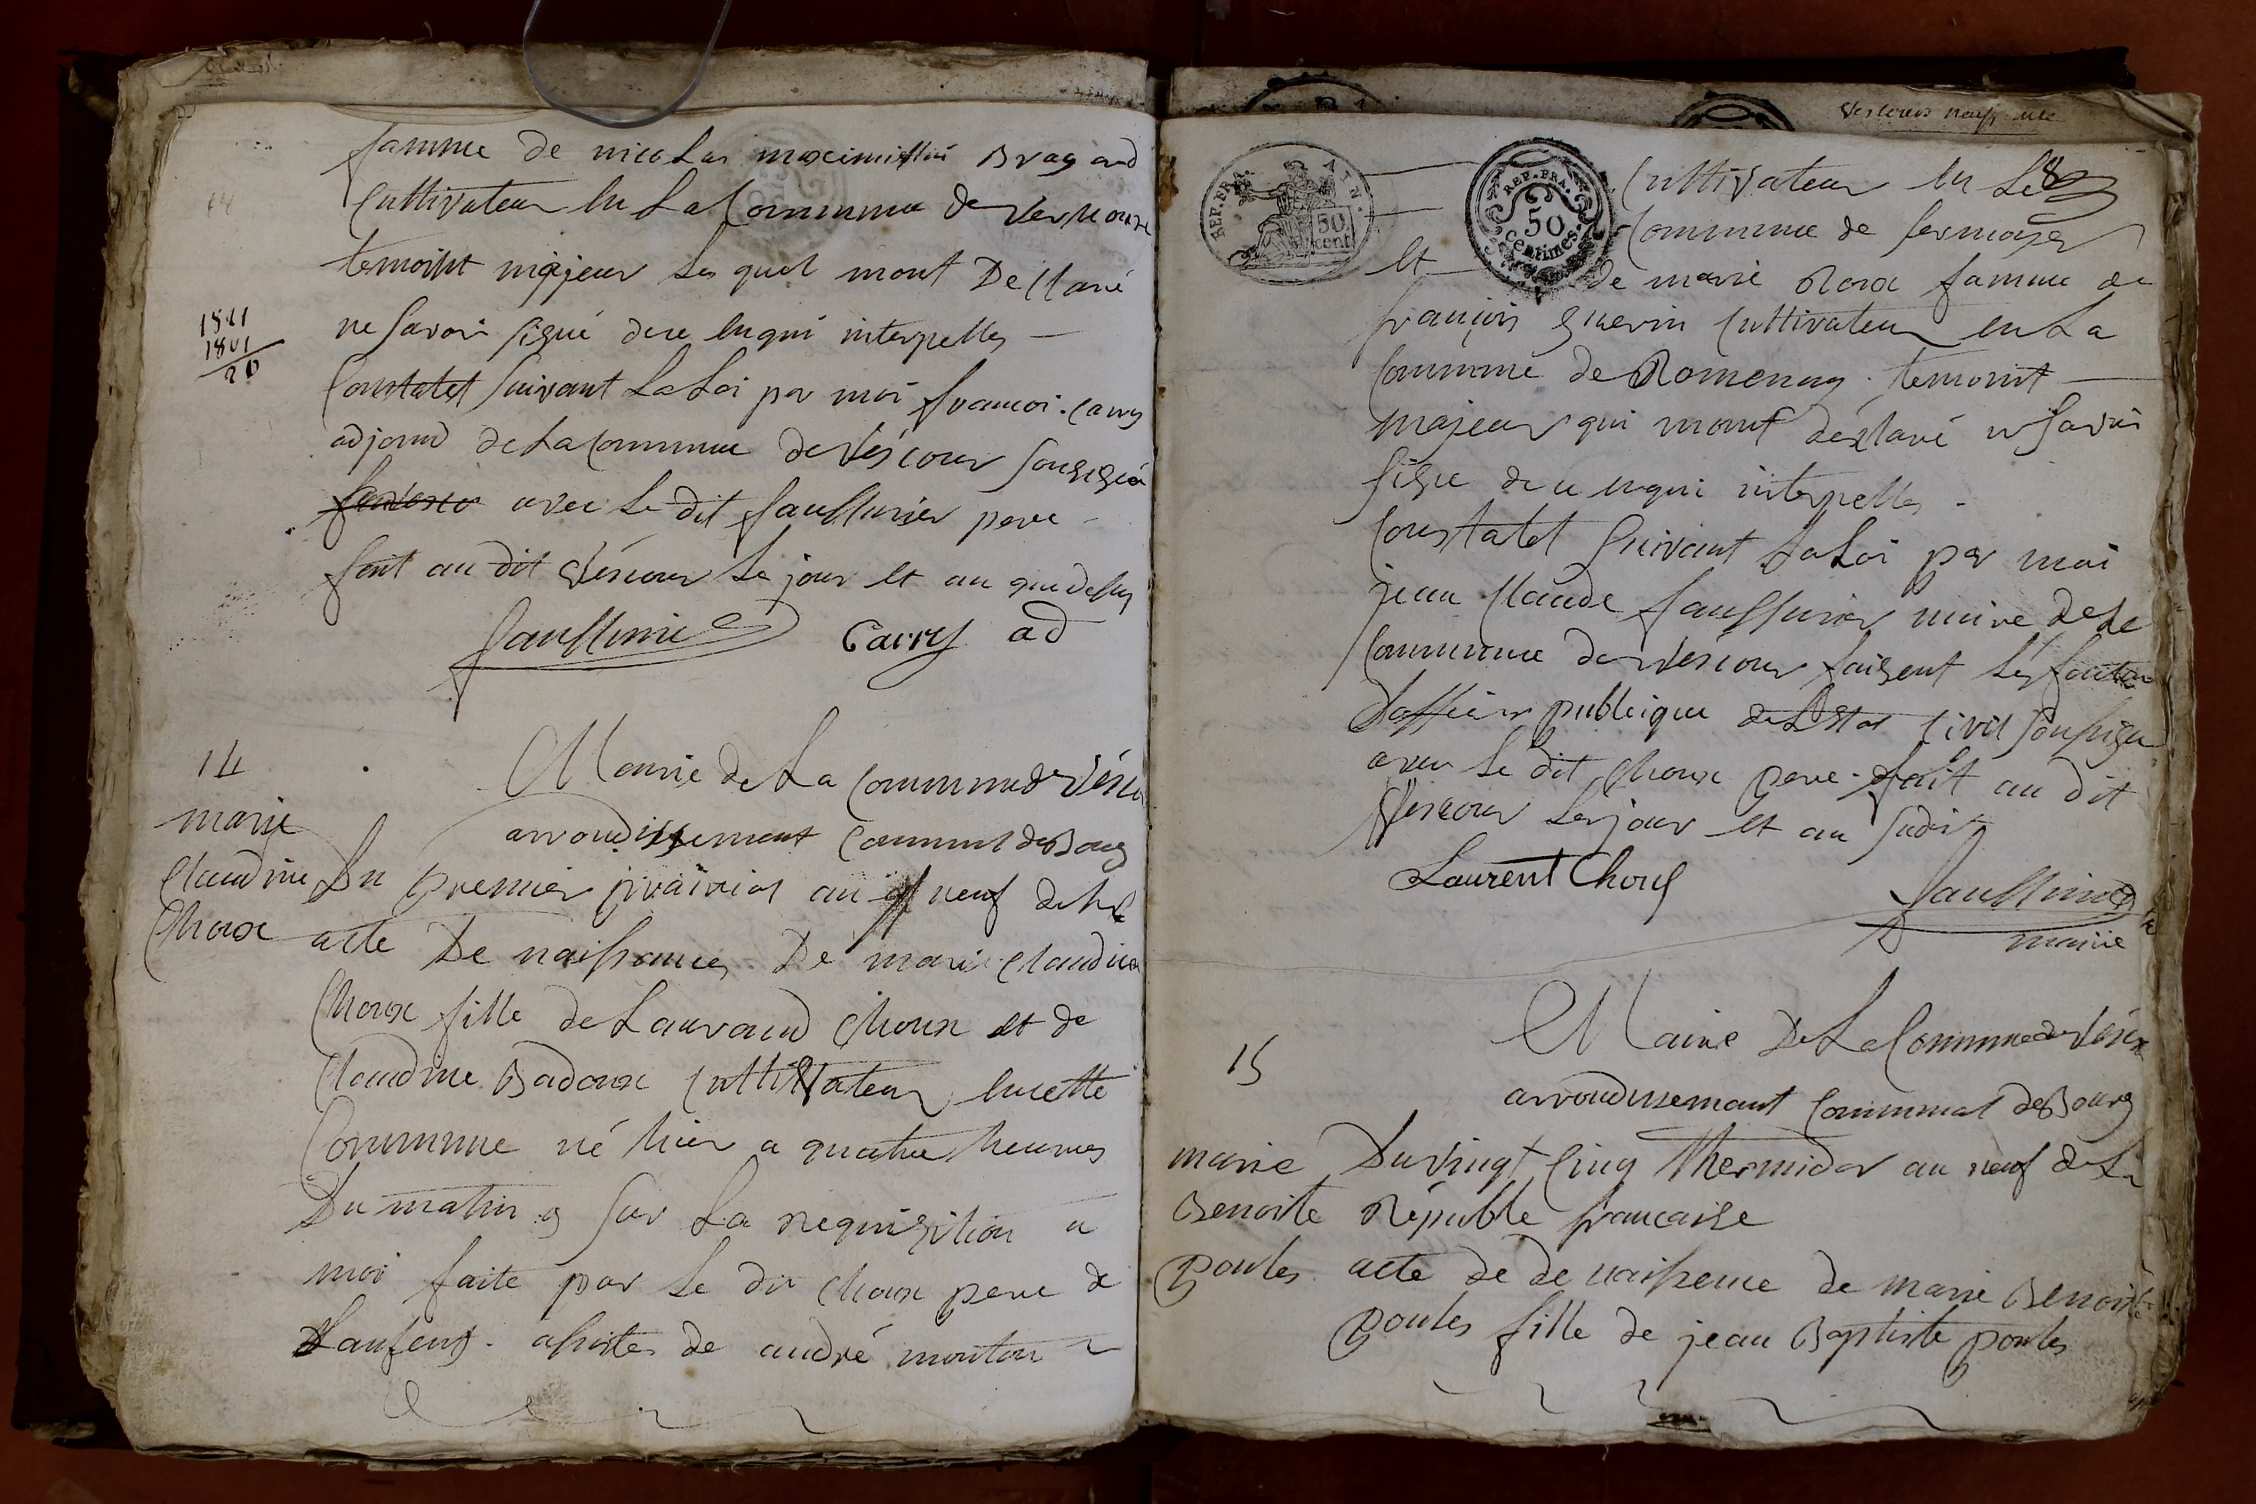 famme de nicolas maximillien Bragand
Cultivateur en La Commune de vernoux
temoint majeur les quel mont Declaré
1821
1801
20
ne savoir signé dece enqui interpelles
Constatet suivant La Loi par moi françoi Carry
adjoind de La Commune de Véscour sousigné
avec Le dit faussurier pere
fait au dit véscour Le jour et an que dessus
Carry ad
14
Mairie de La Commune de Vésco
arrondissement Communal de Bourg
marie
Claudine
Choux
Du premier prairial an neuf de la
acte De naissance De marie Claudine
Choux fille de Laurand Choux et de
Claudine Badoux Cultivateur encette
Commune né hier a quatre heures
Du matin sur La requisition a
moi faite par Le dit Choux pere de
Lanfent assistes de andré mouton
Vescours neuf
REP. FRA.
50
cent
REP. FRA.
50
Centimes.
Cultivateur en La
Commune de sermoyer
et de marie Roux famme de
françois guerin Cultivateur en La
Commune de Romenay temoint
majeur qui mont déclaré n savoir
signe de ce enqui interpelles
Constatet suivant La Loi par moi
jean Claude faussurier maire de la
Commune de vescour faisent Les
Dofficier publique de Letat Civil sousigne
avec Le dit Choux pere fait au dit
Vescour Les jour et an sudit
Laurent Chouf
maire
15
Mairie De La Commune de Vésco
arrondissemant Communal de Bourg
marie
Benoite
poules
Du vingt Cinq thermidor an neuf de La
Républe francaise
acte de de naissence de marie Benoite
poules fille de jean Baptiste poules